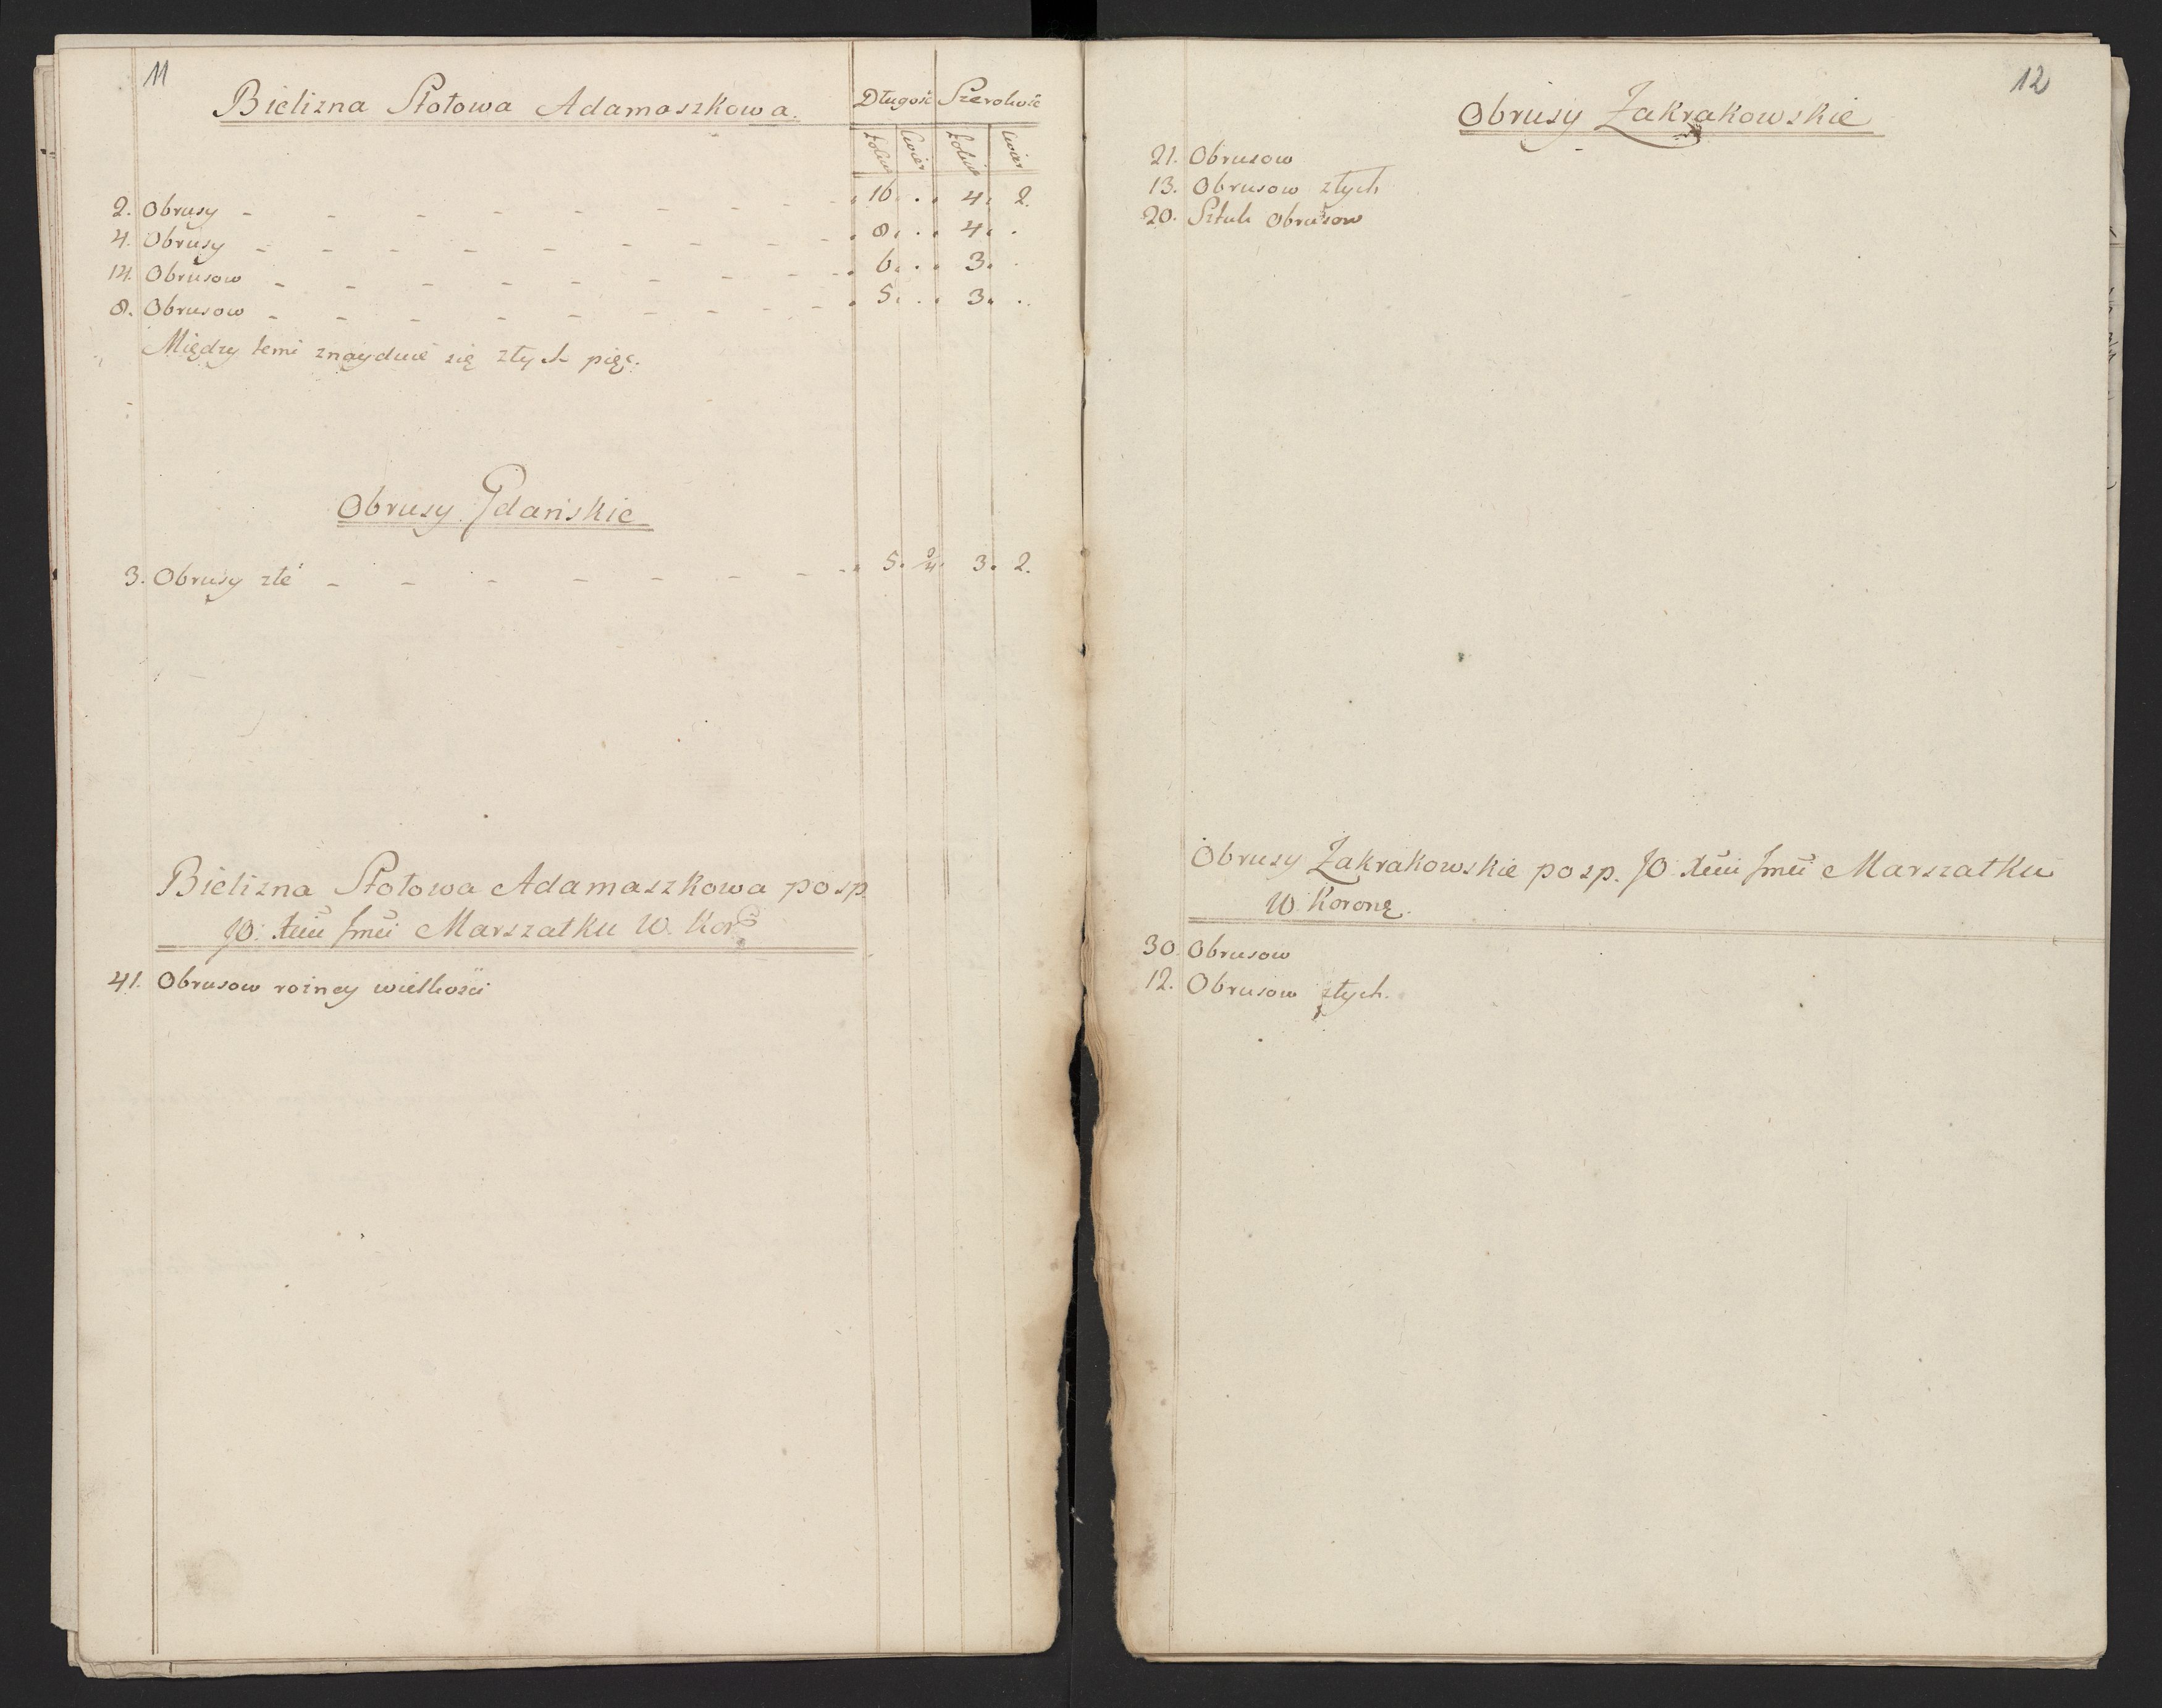 11
Bielizna Stołowa Adamaszkowa. Długość Szerokość
Łokci Cwier Łokci Cwier
2. Obrusy - - - - - - - - - 16. . . 4. 2.
4. Obrusy - - - - - - - - - 8. . . 4. .
14. Obrusow - - - - - - - - - 6. . . 3. .
8. Obrusow - - - - - - - - - 5. . . 3. .
Między temi znayduie się złych pięć.
Obrusy Gdańskie
3. Obrusy złe - - - - - - - - 5. 3. 2.
Bielizna Stołowa Adamaszkowa po sp.
JO: Xciu Jmci Marszałku W. Kor:
41. Obrusow rożney wielkości
12
Obrusy Zakrakowskie
21. Obrusow
13. Obrusow złych
20. Sztuk Obrusow
Obrusy Zakrakowskie po sp. JO Xciu Jmci Marszałku
W. Koronę.
30. Obrusow
12. Obrusow złych.